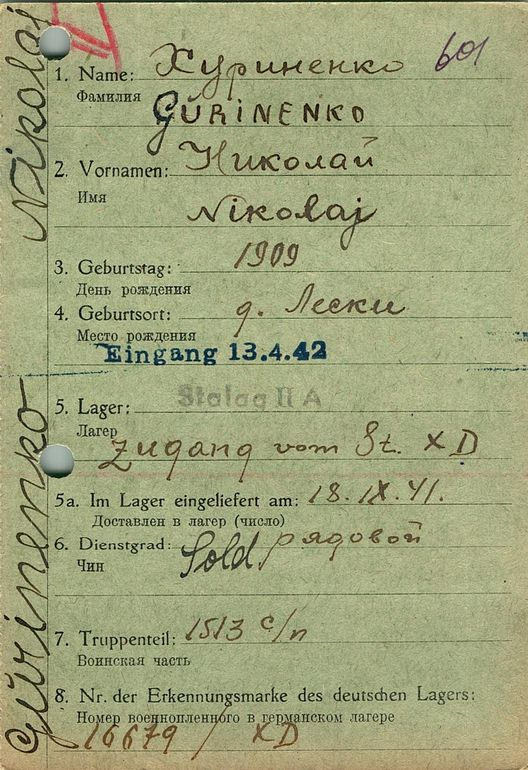 601
1. Name: Хуриненко
Фамилия
GÜRiNENKO
2. Vornamen: Николай
Имя
Nikolaj
3. Geburtstag: 1909
День рождения
4. Geburtsort: д. Лески
Место рождения
Eingang 13.4.42
5. Lager: Stalag II A
Лагерь
Zugang vom St. XD
5a. Im Lager eingeliefert am: 18.IX.41.
Доставлен в лагер (число)
6. Dienstgrad: Sold рядовой
Чин
7. Truppenteil: 1513 с/п
Воинская часть
8. Nr. der Erkennungsmarke des deutschen Lagers:
Номер военнопленного в германском лагере
16679 / XD
Gürinenko Nikolaj